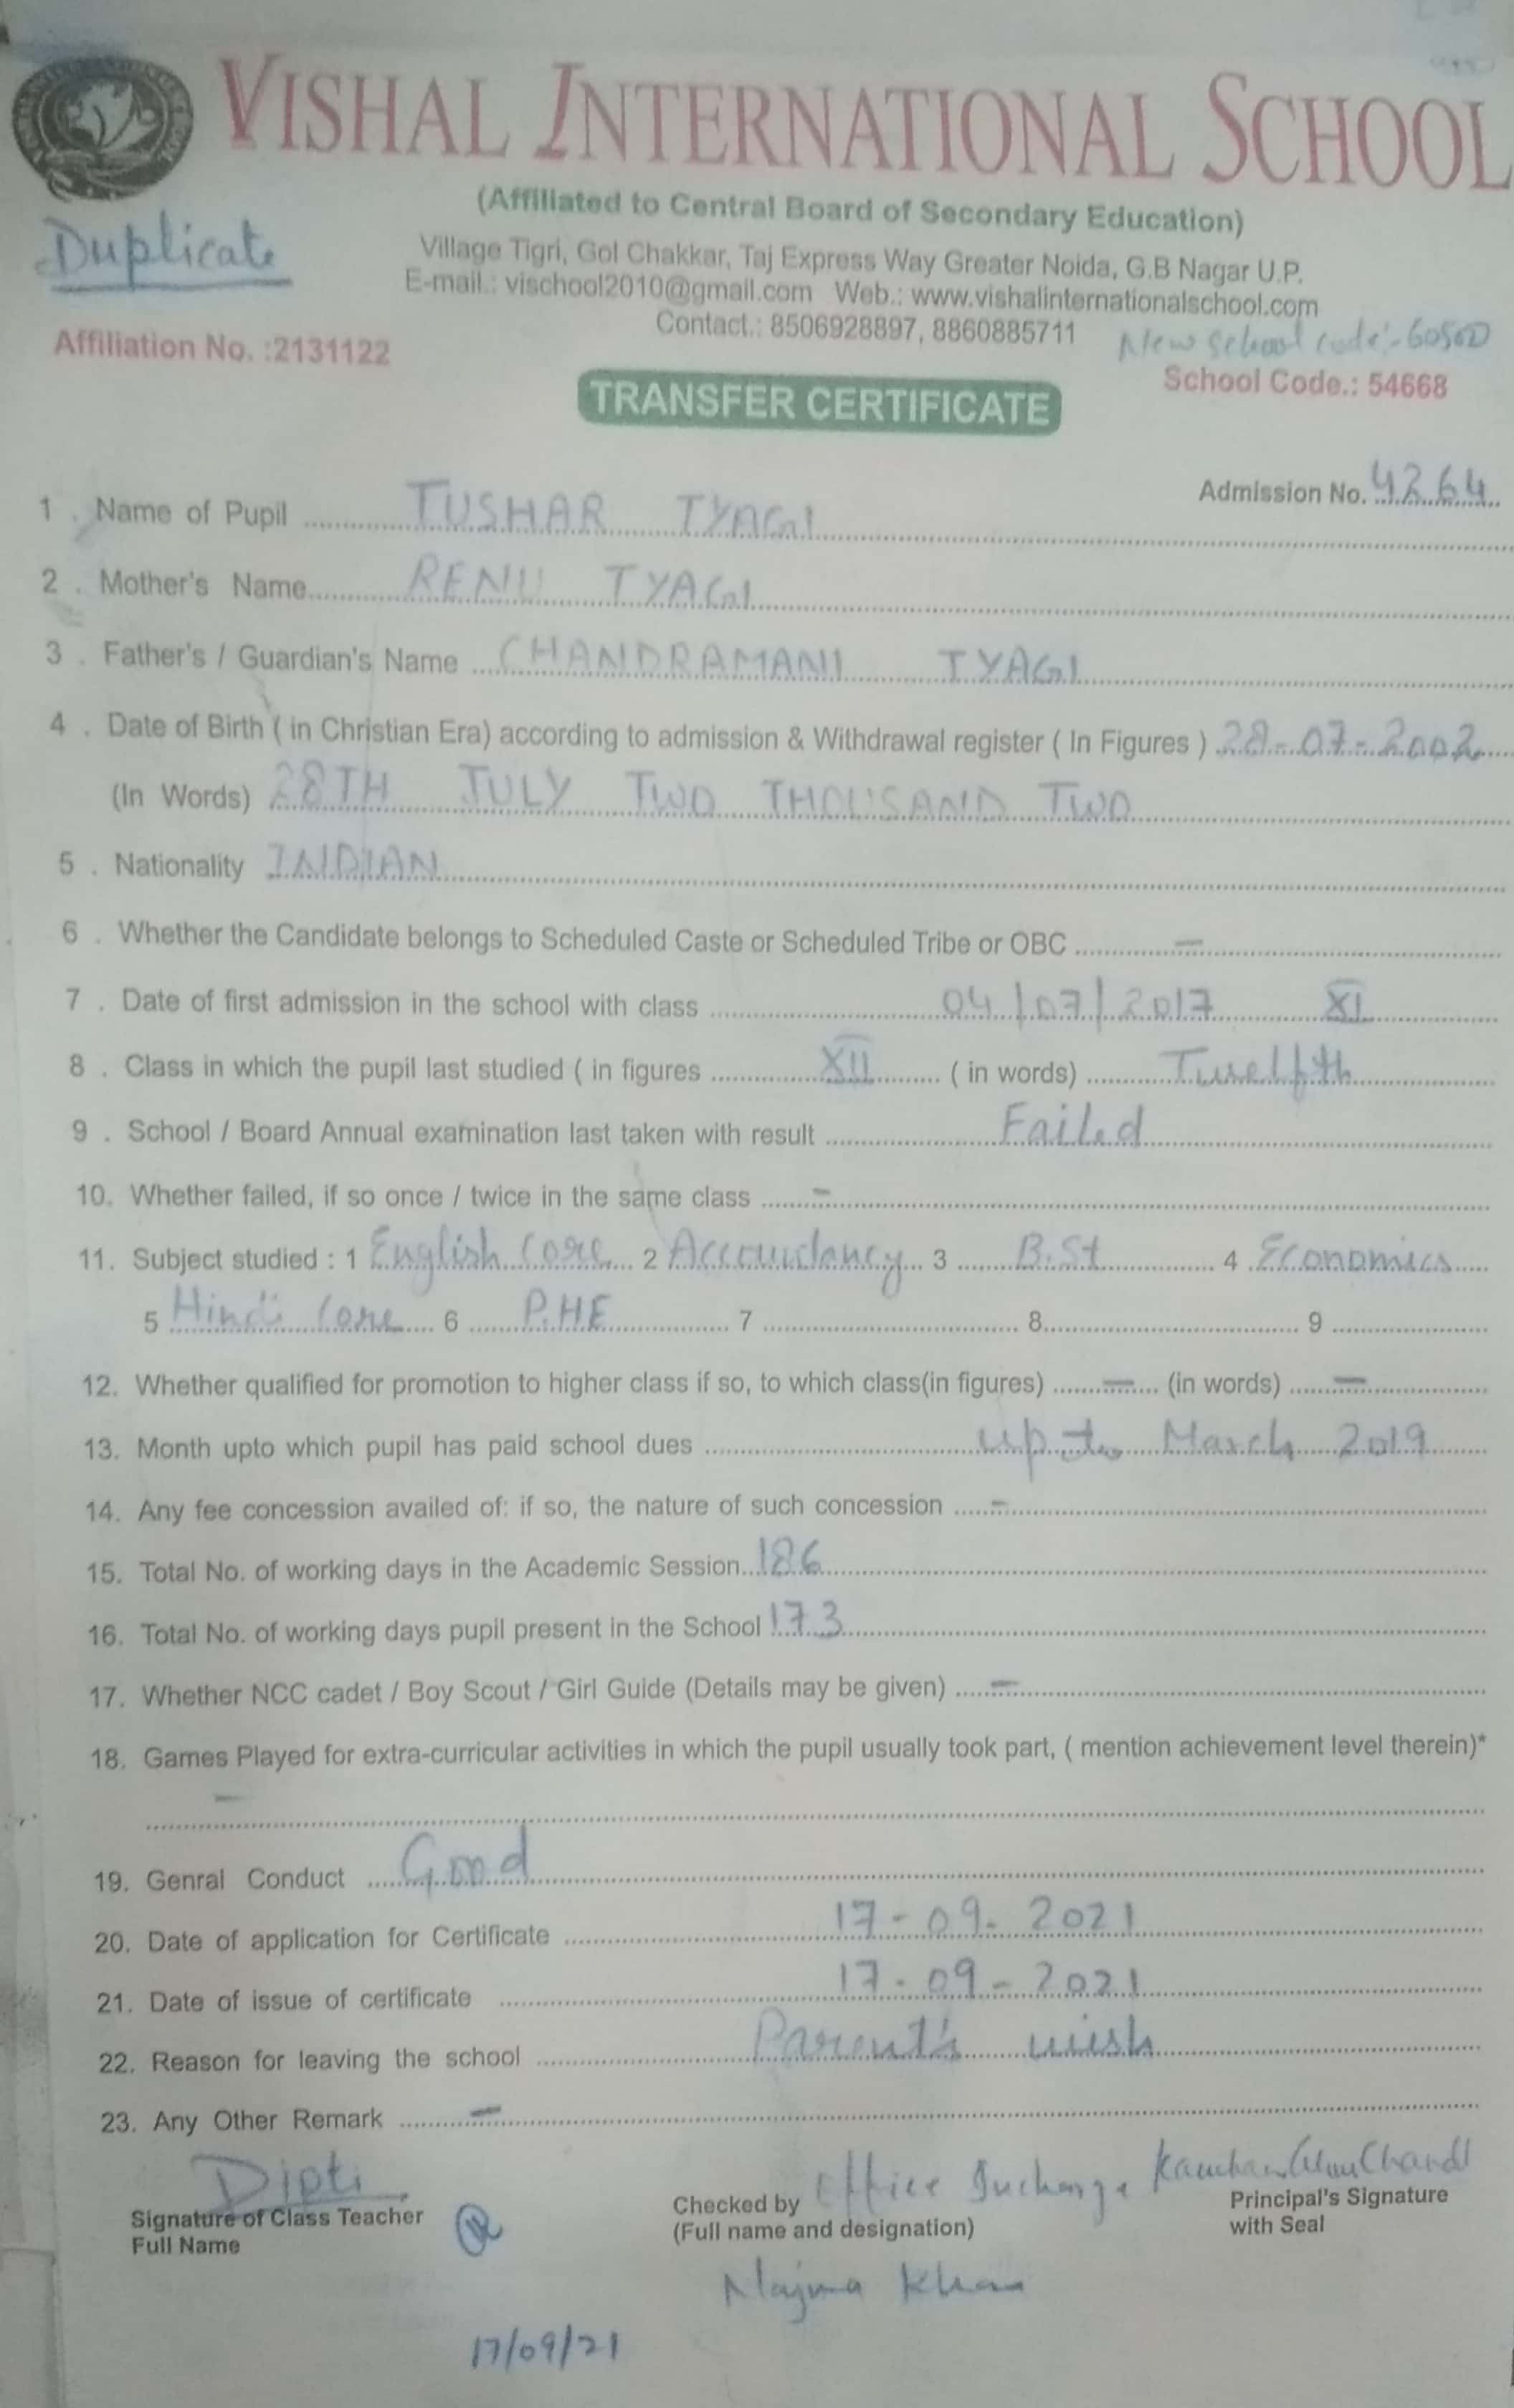 VISHAL INTERNATIONAL SCHOOL
(Affiliated to Central Board of Secondary Education)
Duplicate
Village Tigri, Gol Chakkar, Taj Express Way Greater Noida, G.B Nagar U.P.
E-mail.: vischool2010@gmail.com Web.: www.vishalinternationalschool.com
Contact.: 8506928897, 8860885711
New School code:-
Affiliation No. :2131122
School Code.: 54668
TRANSFER CERTIFICATE
Admission No. 4264
1 . Name of Pupil TUSHAR TYAGI
2 . Mother's Name RENU TYAGI
3 . Father's / Guardian's Name CHANDRAMANI TYAGI
4 . Date of Birth ( in Christian Era) according to admission & Withdrawal register ( In Figures ) 28-07-2002
(In Words) 28TH JULY TWO THOUSAND TWO
5 . Nationality INDIAN
6 . Whether the Candidate belongs to Scheduled Caste or Scheduled Tribe or OBC —
7 . Date of first admission in the school with class 04/07/2017 XI
8 . Class in which the pupil last studied ( in figures XII ( in words) Twelfth
9 . School / Board Annual examination last taken with result Failed
10. Whether failed, if so once / twice in the same class —
11. Subject studied : 1 English Core 2 Accountancy 3 B.St 4 Economics
5 Hindi Core 6 P.HE 7 8 9
12. Whether qualified for promotion to higher class if so, to which class(in figures) — (in words) —
13. Month upto which pupil has paid school dues up to March 2019
14. Any fee concession availed of: if so, the nature of such concession —
15. Total No. of working days in the Academic Session 186
16. Total No. of working days pupil present in the School 173
17. Whether NCC cadet / Boy Scout / Girl Guide (Details may be given) —
18. Games Played for extra-curricular activities in which the pupil usually took part, ( mention achievement level therein)*
—
19. Genral Conduct Good
20. Date of application for Certificate 17-09-2021
21. Date of issue of certificate 17-09-2021
22. Reason for leaving the school Parent's wish
23. Any Other Remark —
Dipti
Signature of Class Teacher
Full Name
Checked by Office Incharge
(Full name and designation)
Najma Khan
Chand
Principal's Signature
with Seal
17/09/21